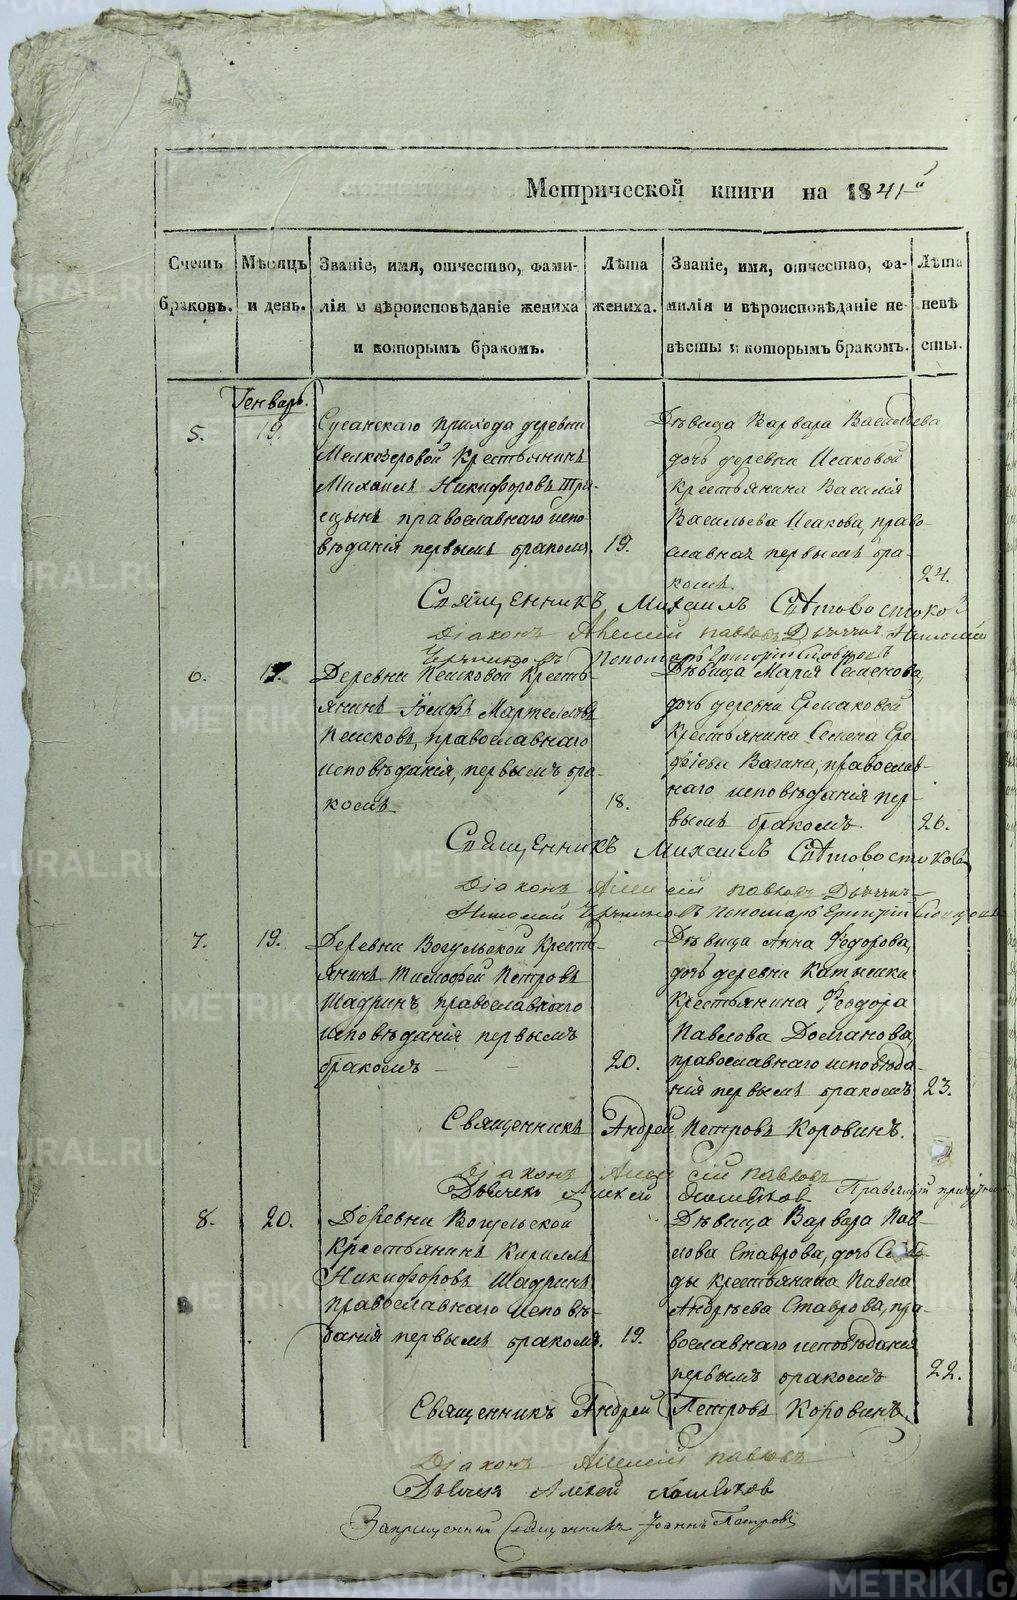 Метрической книги на 1841й
Счетъ браковъ.
Мѣсяцъ и день.
Званіе, имя, отчество, фами-
лія и вѣроисповѣданіе жениха
и которымъ бракомъ.
Лѣта
жениха.
Званіе, имя, отчество, фа-
милія и вѣроисповѣданіе не-
вѣсты и которымъ бракомъ.
Лѣта
невѣ
сты.
Генварь.
5.
19.
Сусанскаго прихода деревни
Мелкозеровой Крестьянинъ
Михаилъ Никифоровъ
православнаго испо-
вѣданія первымъ бракомъ.
19.
Дѣвица Варвара Васильева
дочь деревни Исаковой
Крестьянина Василія
Васильева Исакова, право-
славная первымъ бра-
комъ.
24.
Священникъ Михаилъ Свѣтовостоковъ
Діаконъ Алексій Павловъ Дьячекъ Николай
Пономарь Григорій Словцовъ
6.
Деревни Пешковой Кресть-
янинъ Іосифъ
Пешковъ, православнаго
исповѣданія, первымъ бра-
комъ
18.
Дѣвица Марія Семенова,
дочь деревни Ермаковой
Крестьянина Семена Еро-
фіева Вагина, православ-
наго исповѣданія пер-
вымъ бракомъ.
26.
Священникъ Михаилъ Свѣтовостоковъ
Діаконъ Алексій Павловъ Дьячекъ
Николай Пономарь Григорій Словцовъ
7.
19.
Деревни Вогульской Кресть-
янинъ Тимофей Петровъ
Шадринъ православнаго
исповѣданія первымъ
бракомъ
20.
Дѣвица Анна Федорова,
дочь деревни Катышки
Крестьянина Феодора
Павлова Долганова,
православнаго исповѣда-
нія первымъ бракомъ
23.
Священникъ Андрей Петровъ Коровинъ.
Діаконъ Алексій Павловъ
Дьячекъ Алексей
8.
20.
Деревни Вогульской
Крестьянинъ Кириллъ
Никифоровъ Шадринъ
православнаго исповѣ-
данія первымъ бракомъ.
19.
Дѣвица Варвара Пав-
лова Ставрова, дочь
крестьянина Павла
Андреева Ставрова, пра-
вославнаго исповѣданія
первымъ бракомъ
22.
Священникъ Андрей Петровъ Коровинъ.
Діаконъ Алексій Павловъ
Дьячекъ Алексей
Запрещенный Священникъ Іоаннъ Петровъ
METRIKI.GASO-URAL.RU